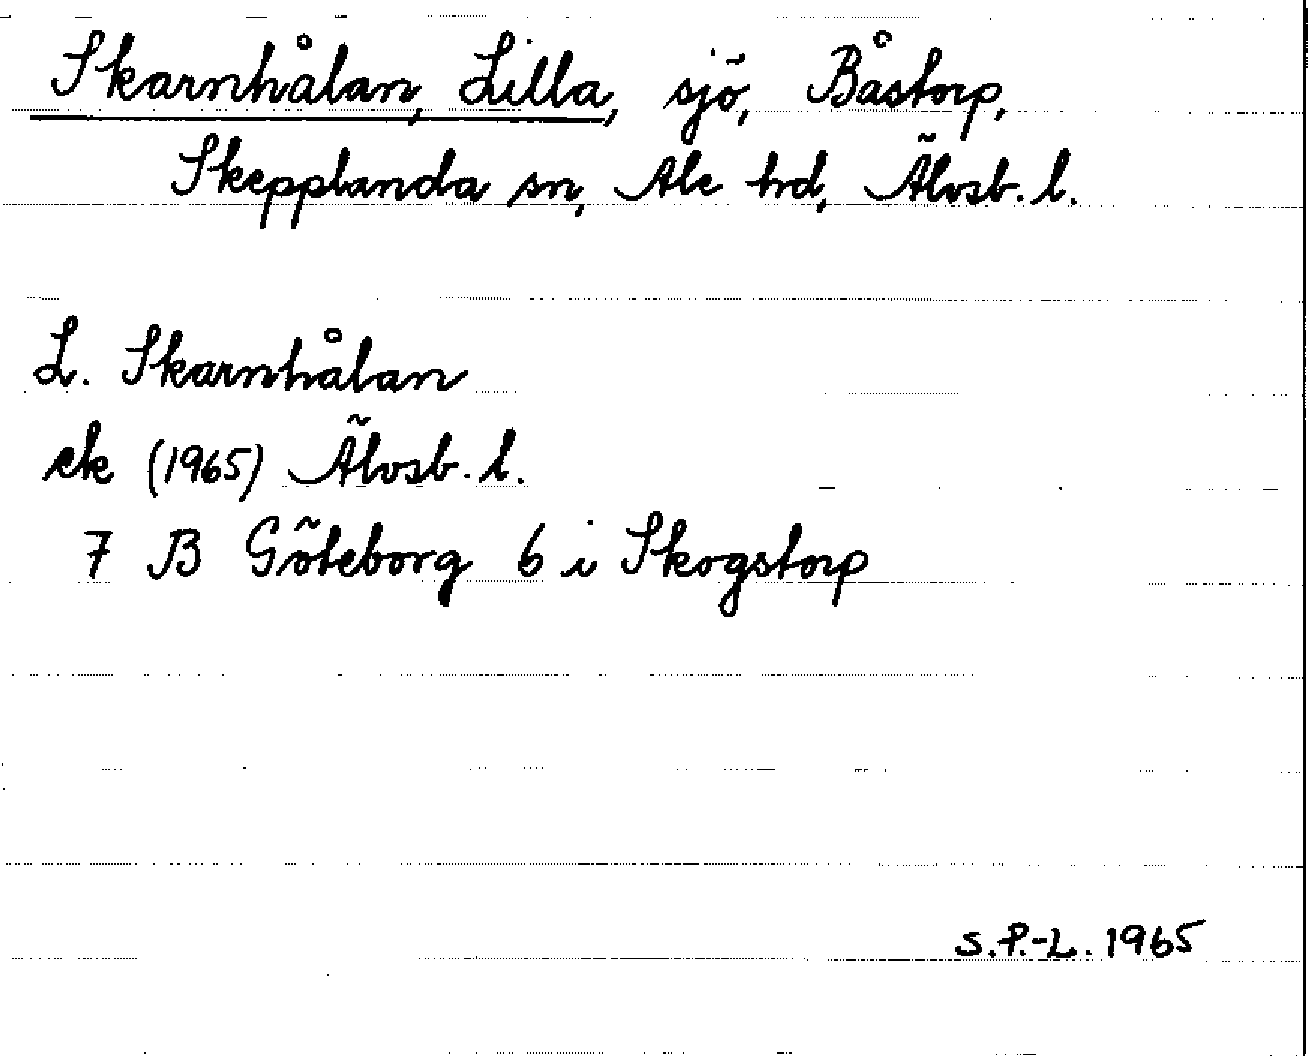 Skarnhålan, Lilla, sjö, Båstorp,
Skepplanda sn, Ale hd, Älvsb. l.
L. Skarnhålan
ek (1965) Älvsb. l.
7 B Göteborg 6 i Skogstorp
S.P.-L. 1965